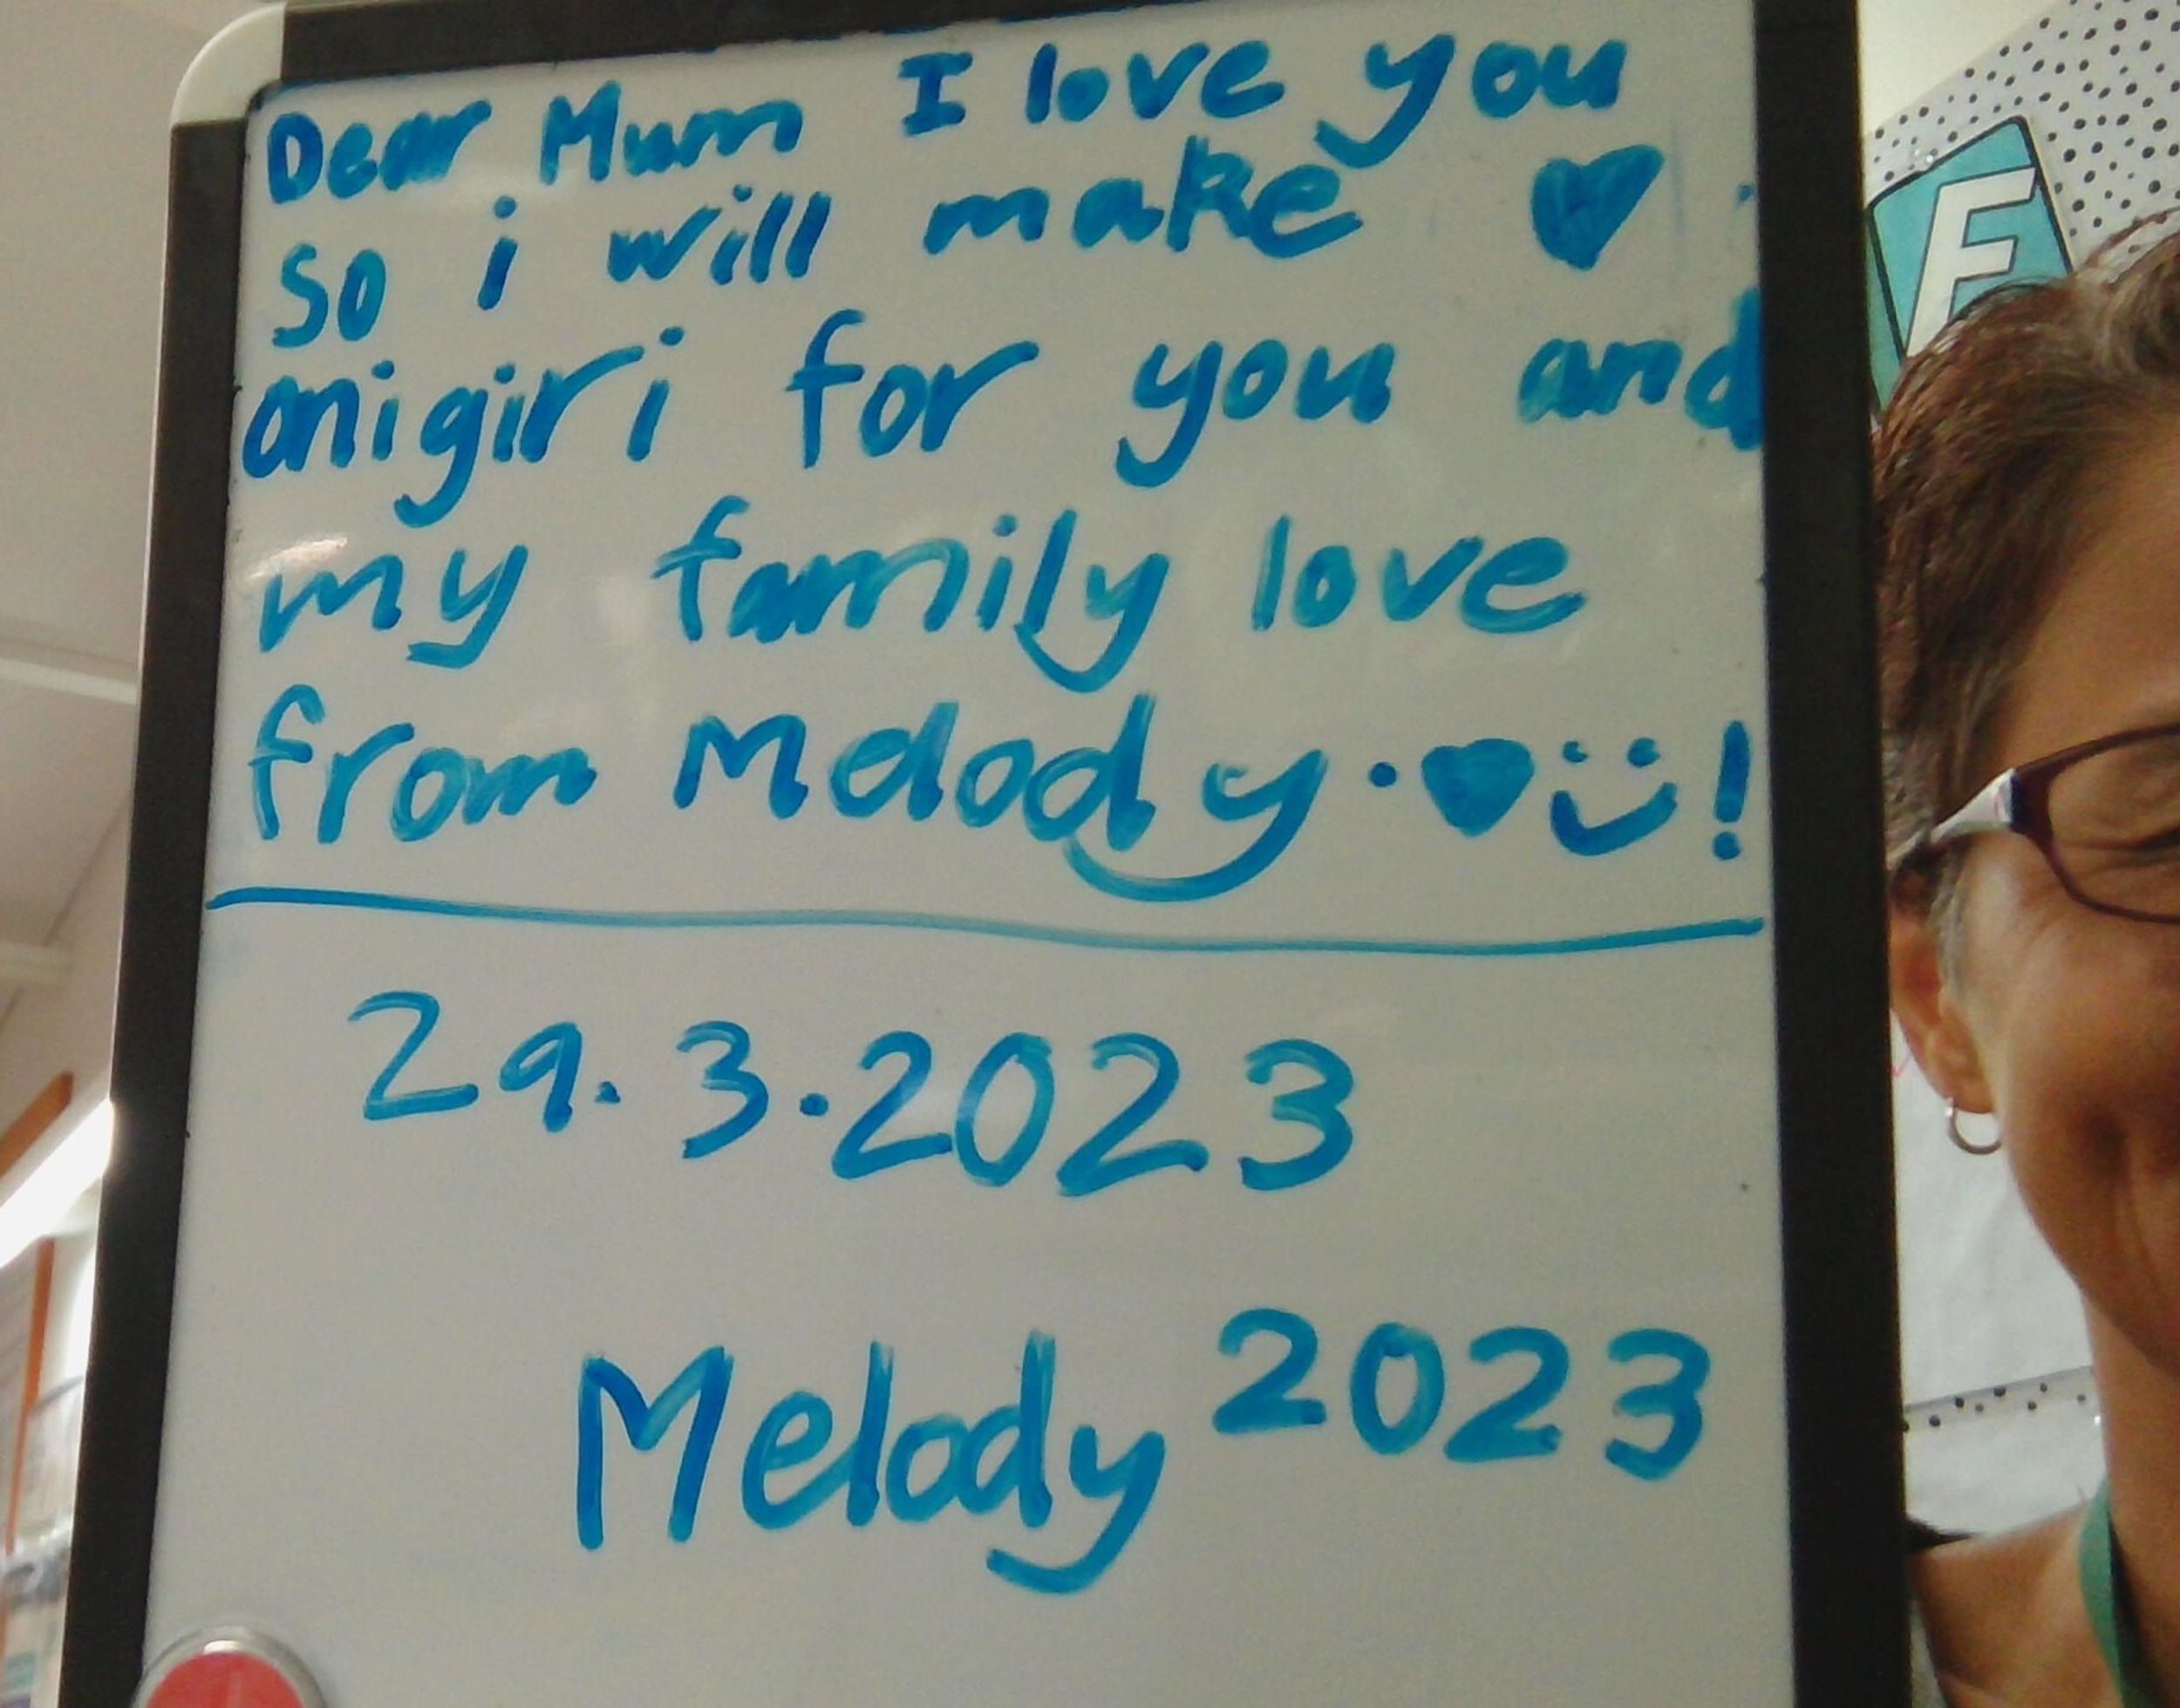 Dear Mum I love you
so i will make ♥
onigiri for you and
my family love
from Melody.♥ü!
29.3.2023
Melody 2023
F